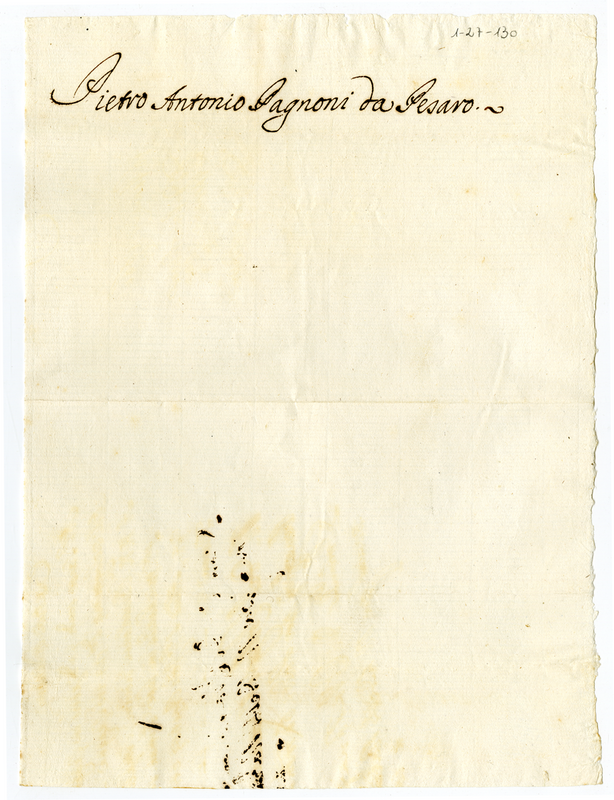 1-27-130
Pietro Antonio Pagnoni da Pesaro.~